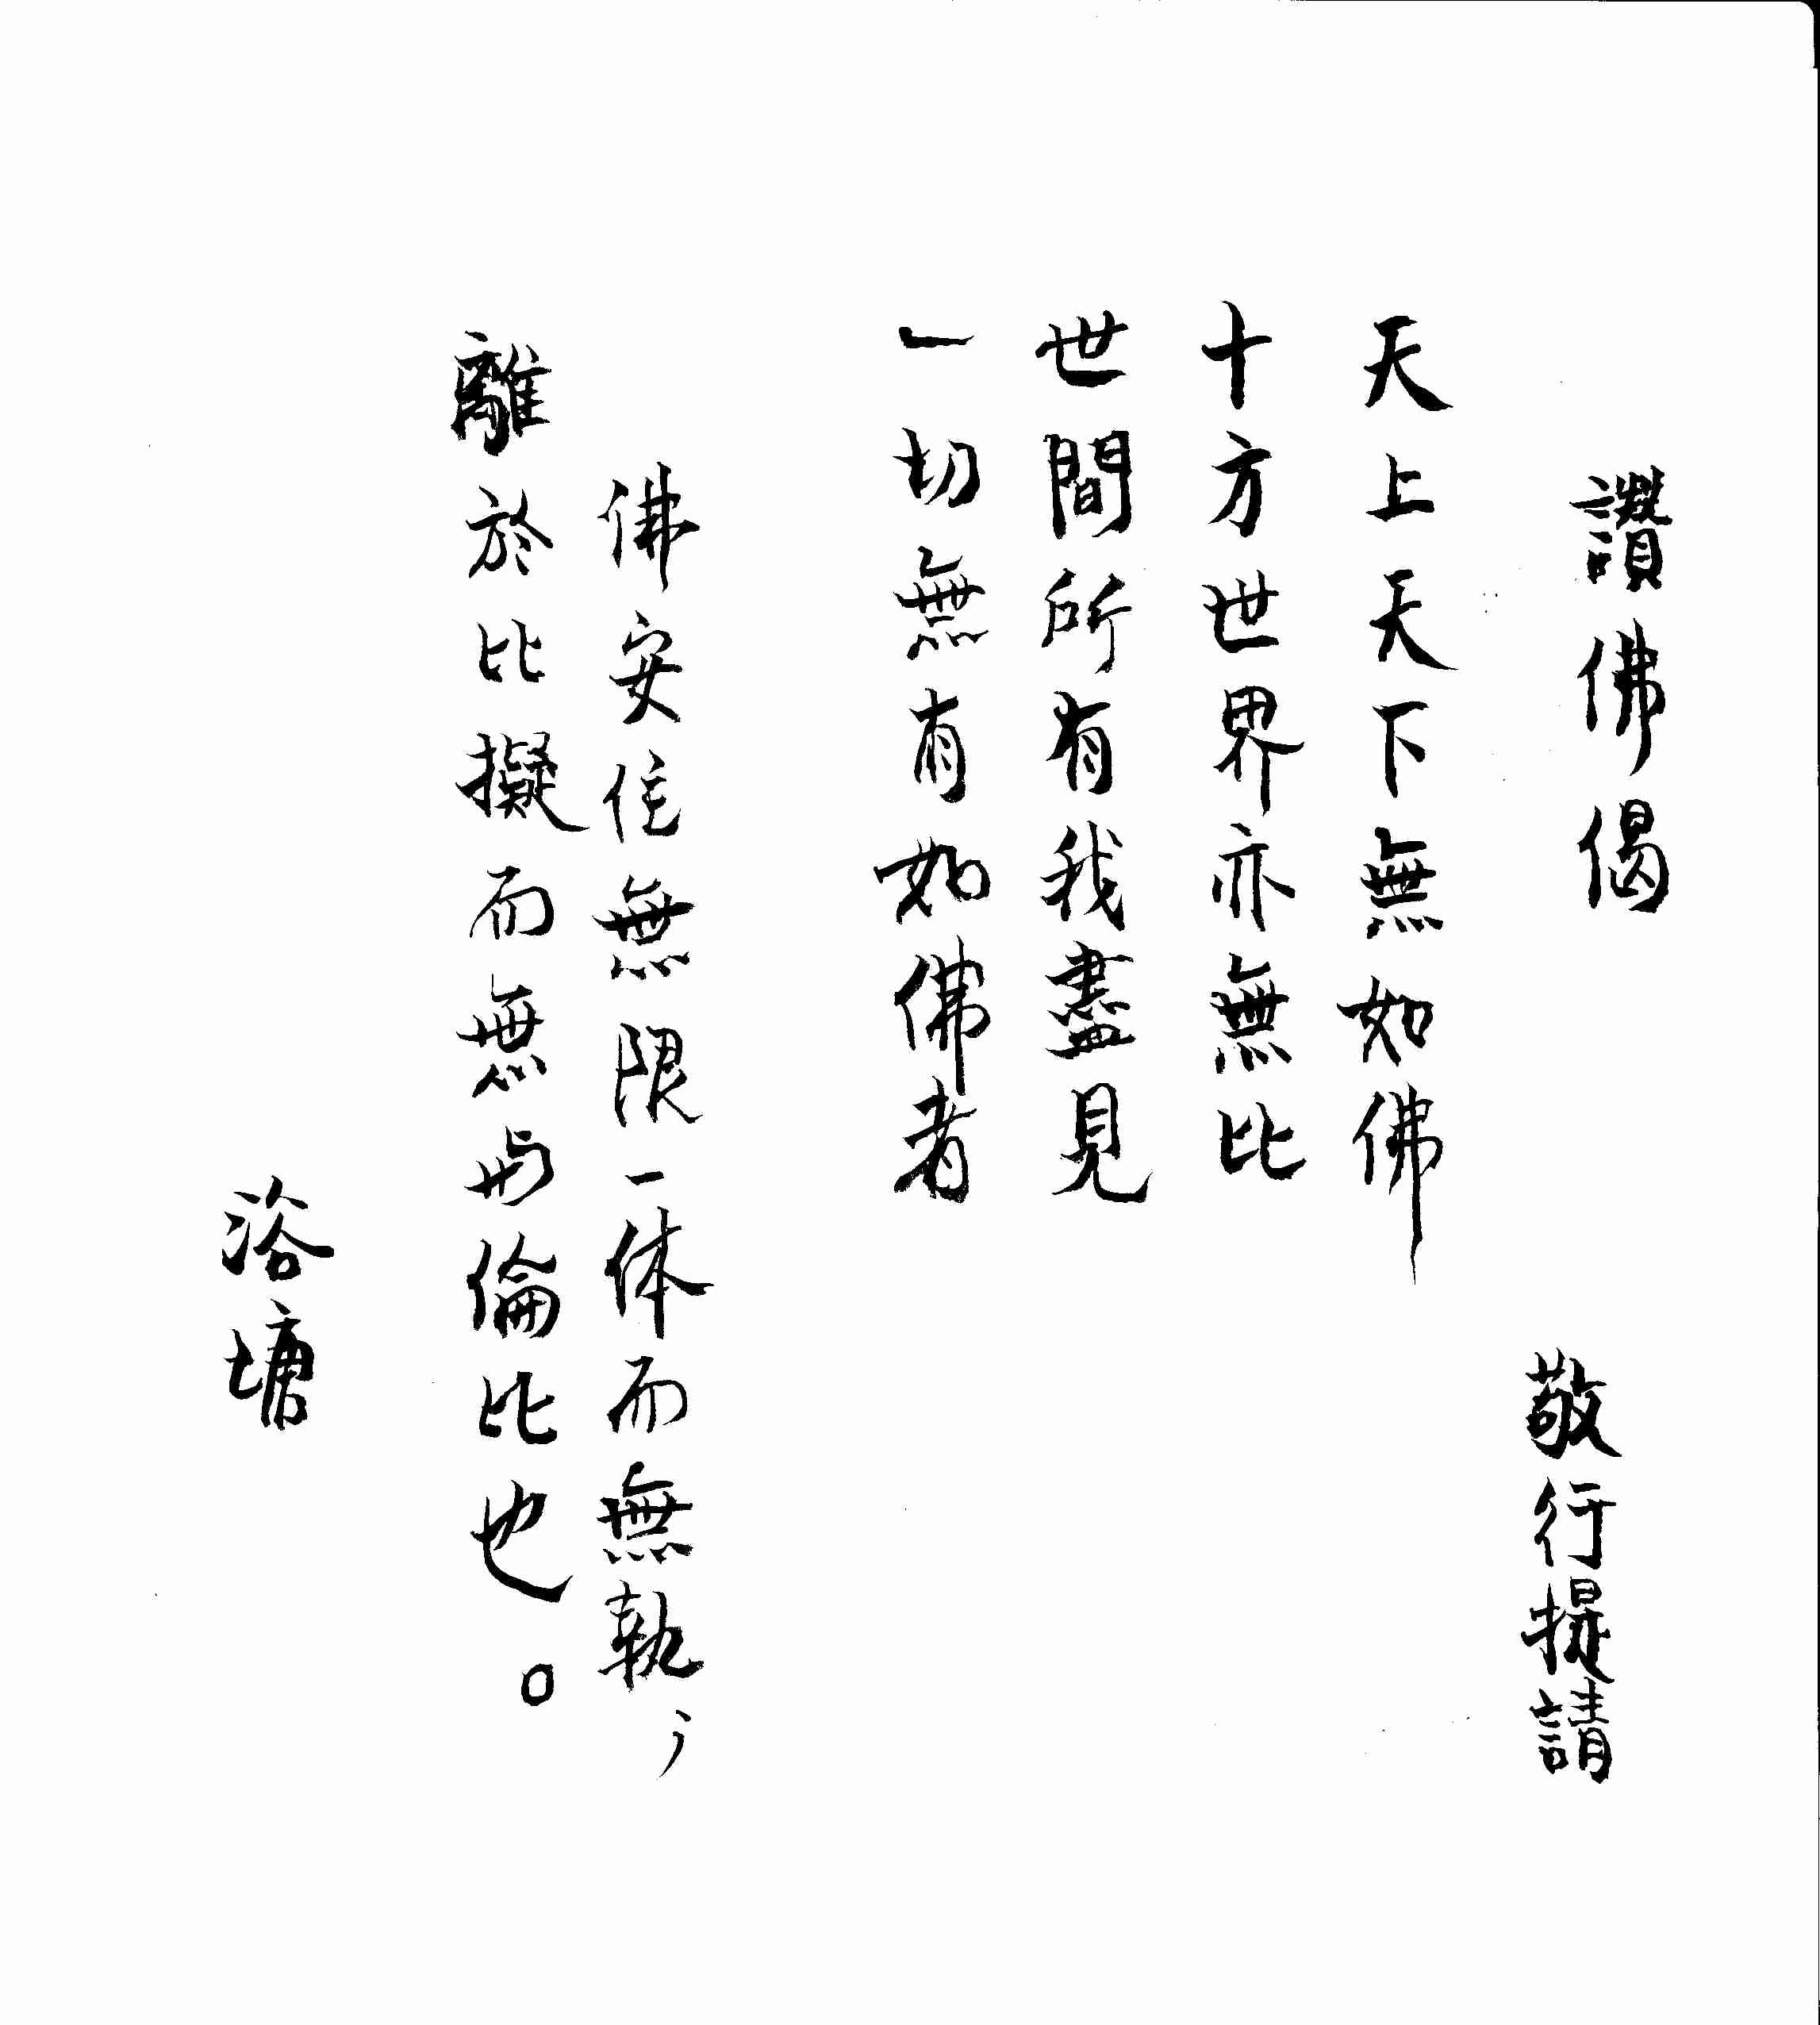 讚佛偈
敬行提請
天上天下無如佛
十方世界亦無比
世間所有我盡見
一切無有如佛者
佛安住無限一体而無執，
離於比擬而無与倫比也。
浴塘